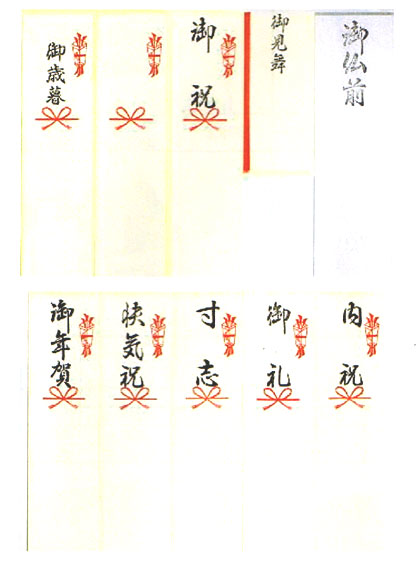 御仏前
御見舞
御祝
御歳暮
内祝
御礼
寸志
快気祝
御年賀